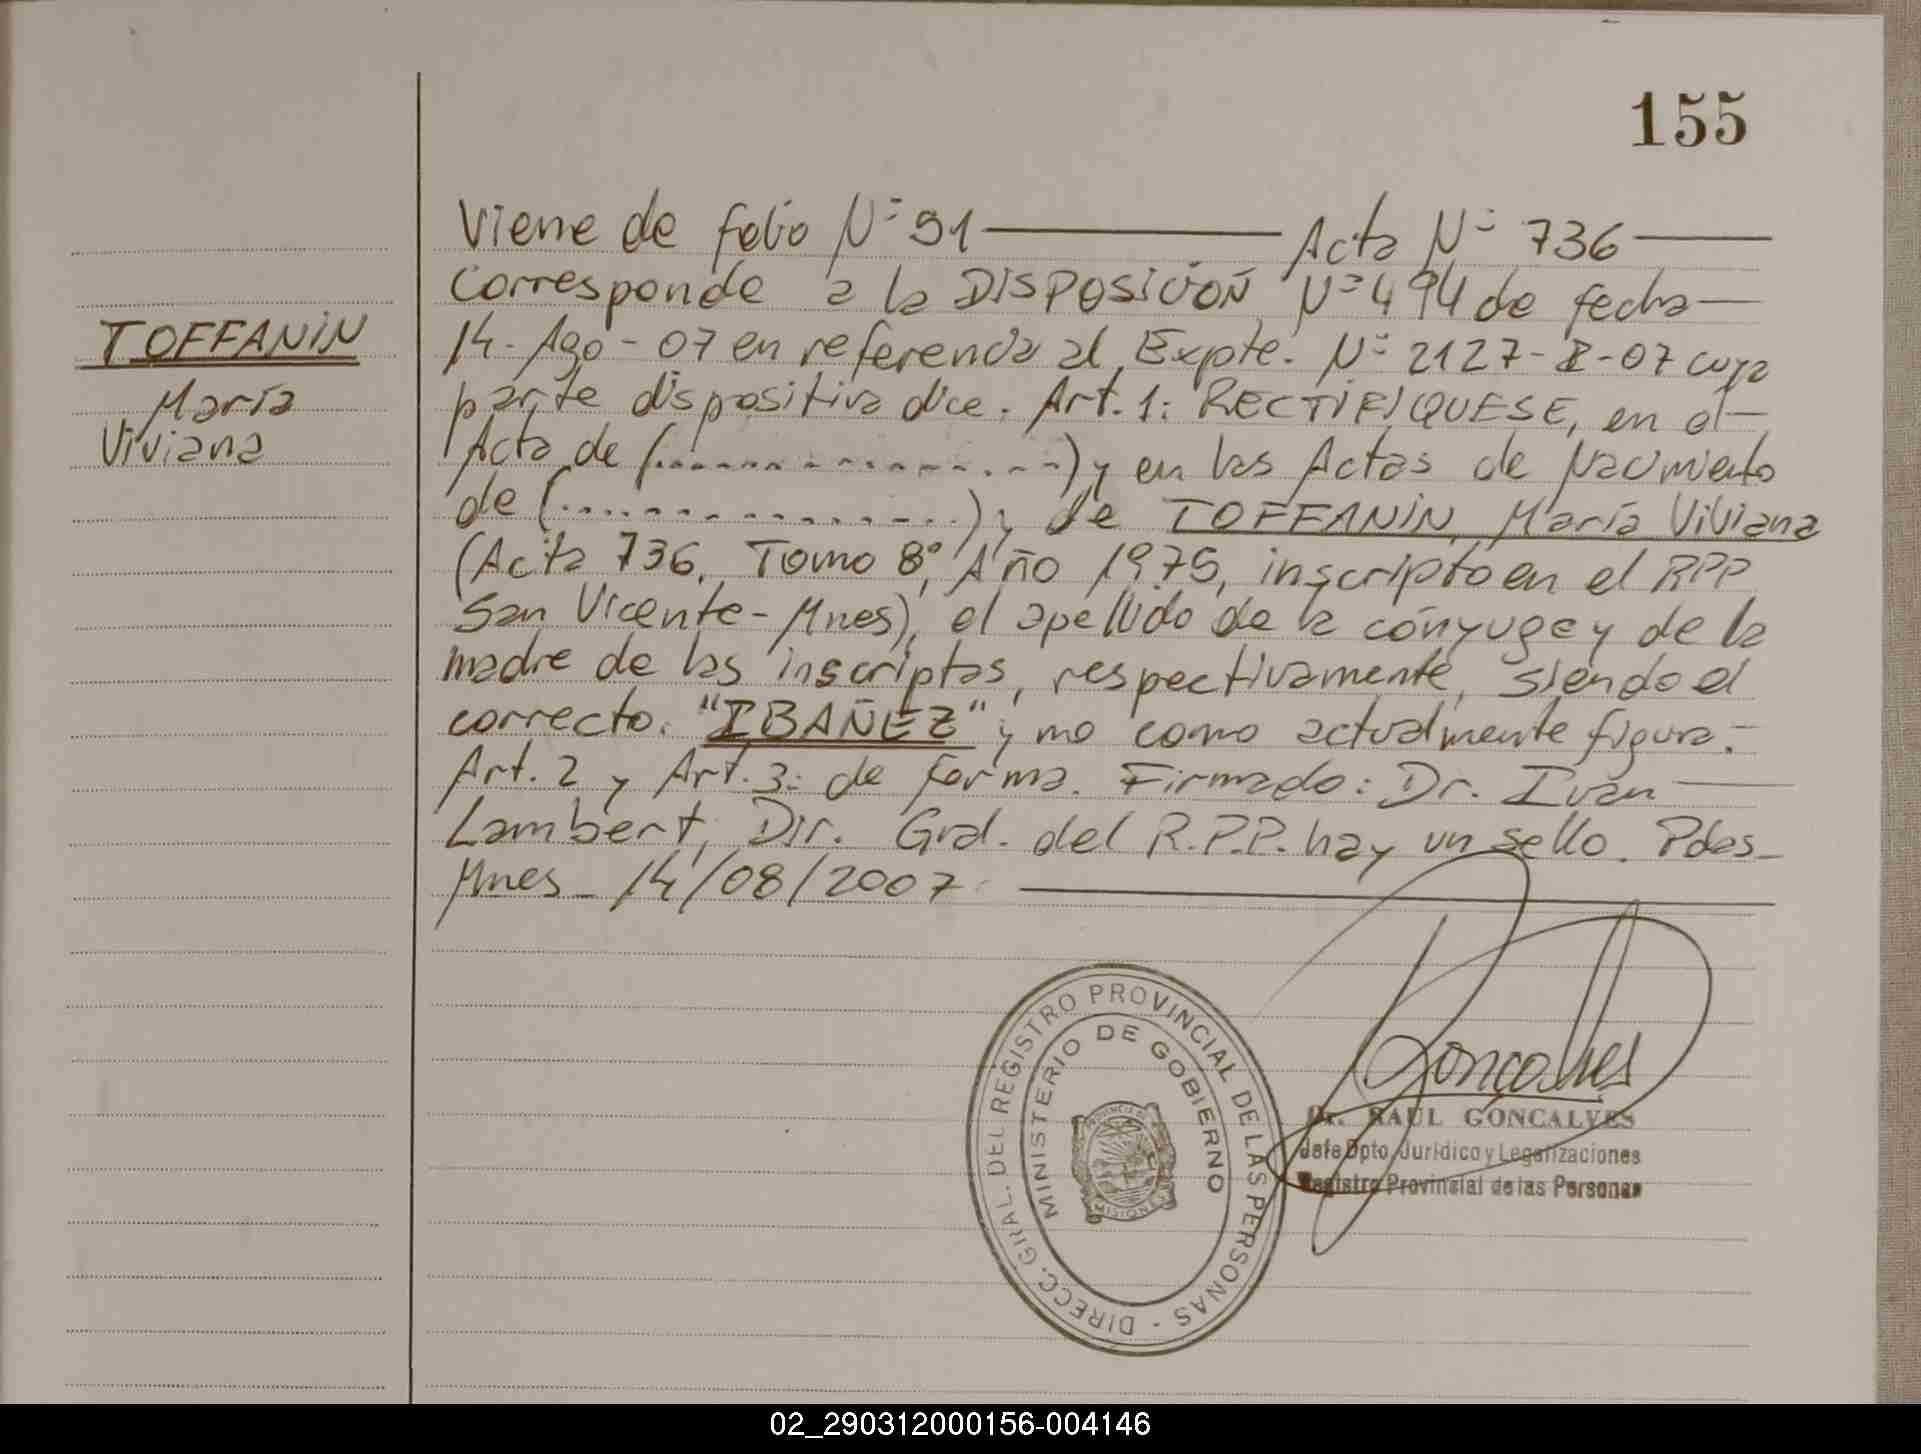 155
Viene de folio Nº 91 Acta Nº 736
corresponde a la DISPOSICIÓN Nº 494 de fecha
14-Ago-07 en referencia al Expte. Nº 2127- -07 cuya
TOFFANIN
parte dispositiva dice. Art. 1: RECTIFIQUESE, en el
María
Viviana
Acta de (................) y en las Actas de Nacimiento
de (................) y de TOFFANIN, María Viviana
(Acta 736, Tomo 8º, Año 1975, inscripto en el RPP
San Vicente-Mnes), el apellido de la cónyuge y de la
madre de las inscriptas, respectivamente, siendo el
correcto. "IBAÑEZ" y no como actualmente figura.-
Art. 2 y Art. 3: de forma. Firmado: Dr. Ivan
Lambert, Dir. Gral. del R.P.P. hay un sello. Pdas-
Mnes- 14/08/2007
DIRECC. GRAL. DEL REGISTRO PROVINCIAL DE LAS PERSONAS -
MINISTERIO DE GOBIERNO
PROVINCIA DE
MISIONES
Goncalves
Dr. RAUL GONCALVES
Jefe Dpto. Jurídico y Legalizaciones
Registro Provincial de las Personas
02_290312000156-004146